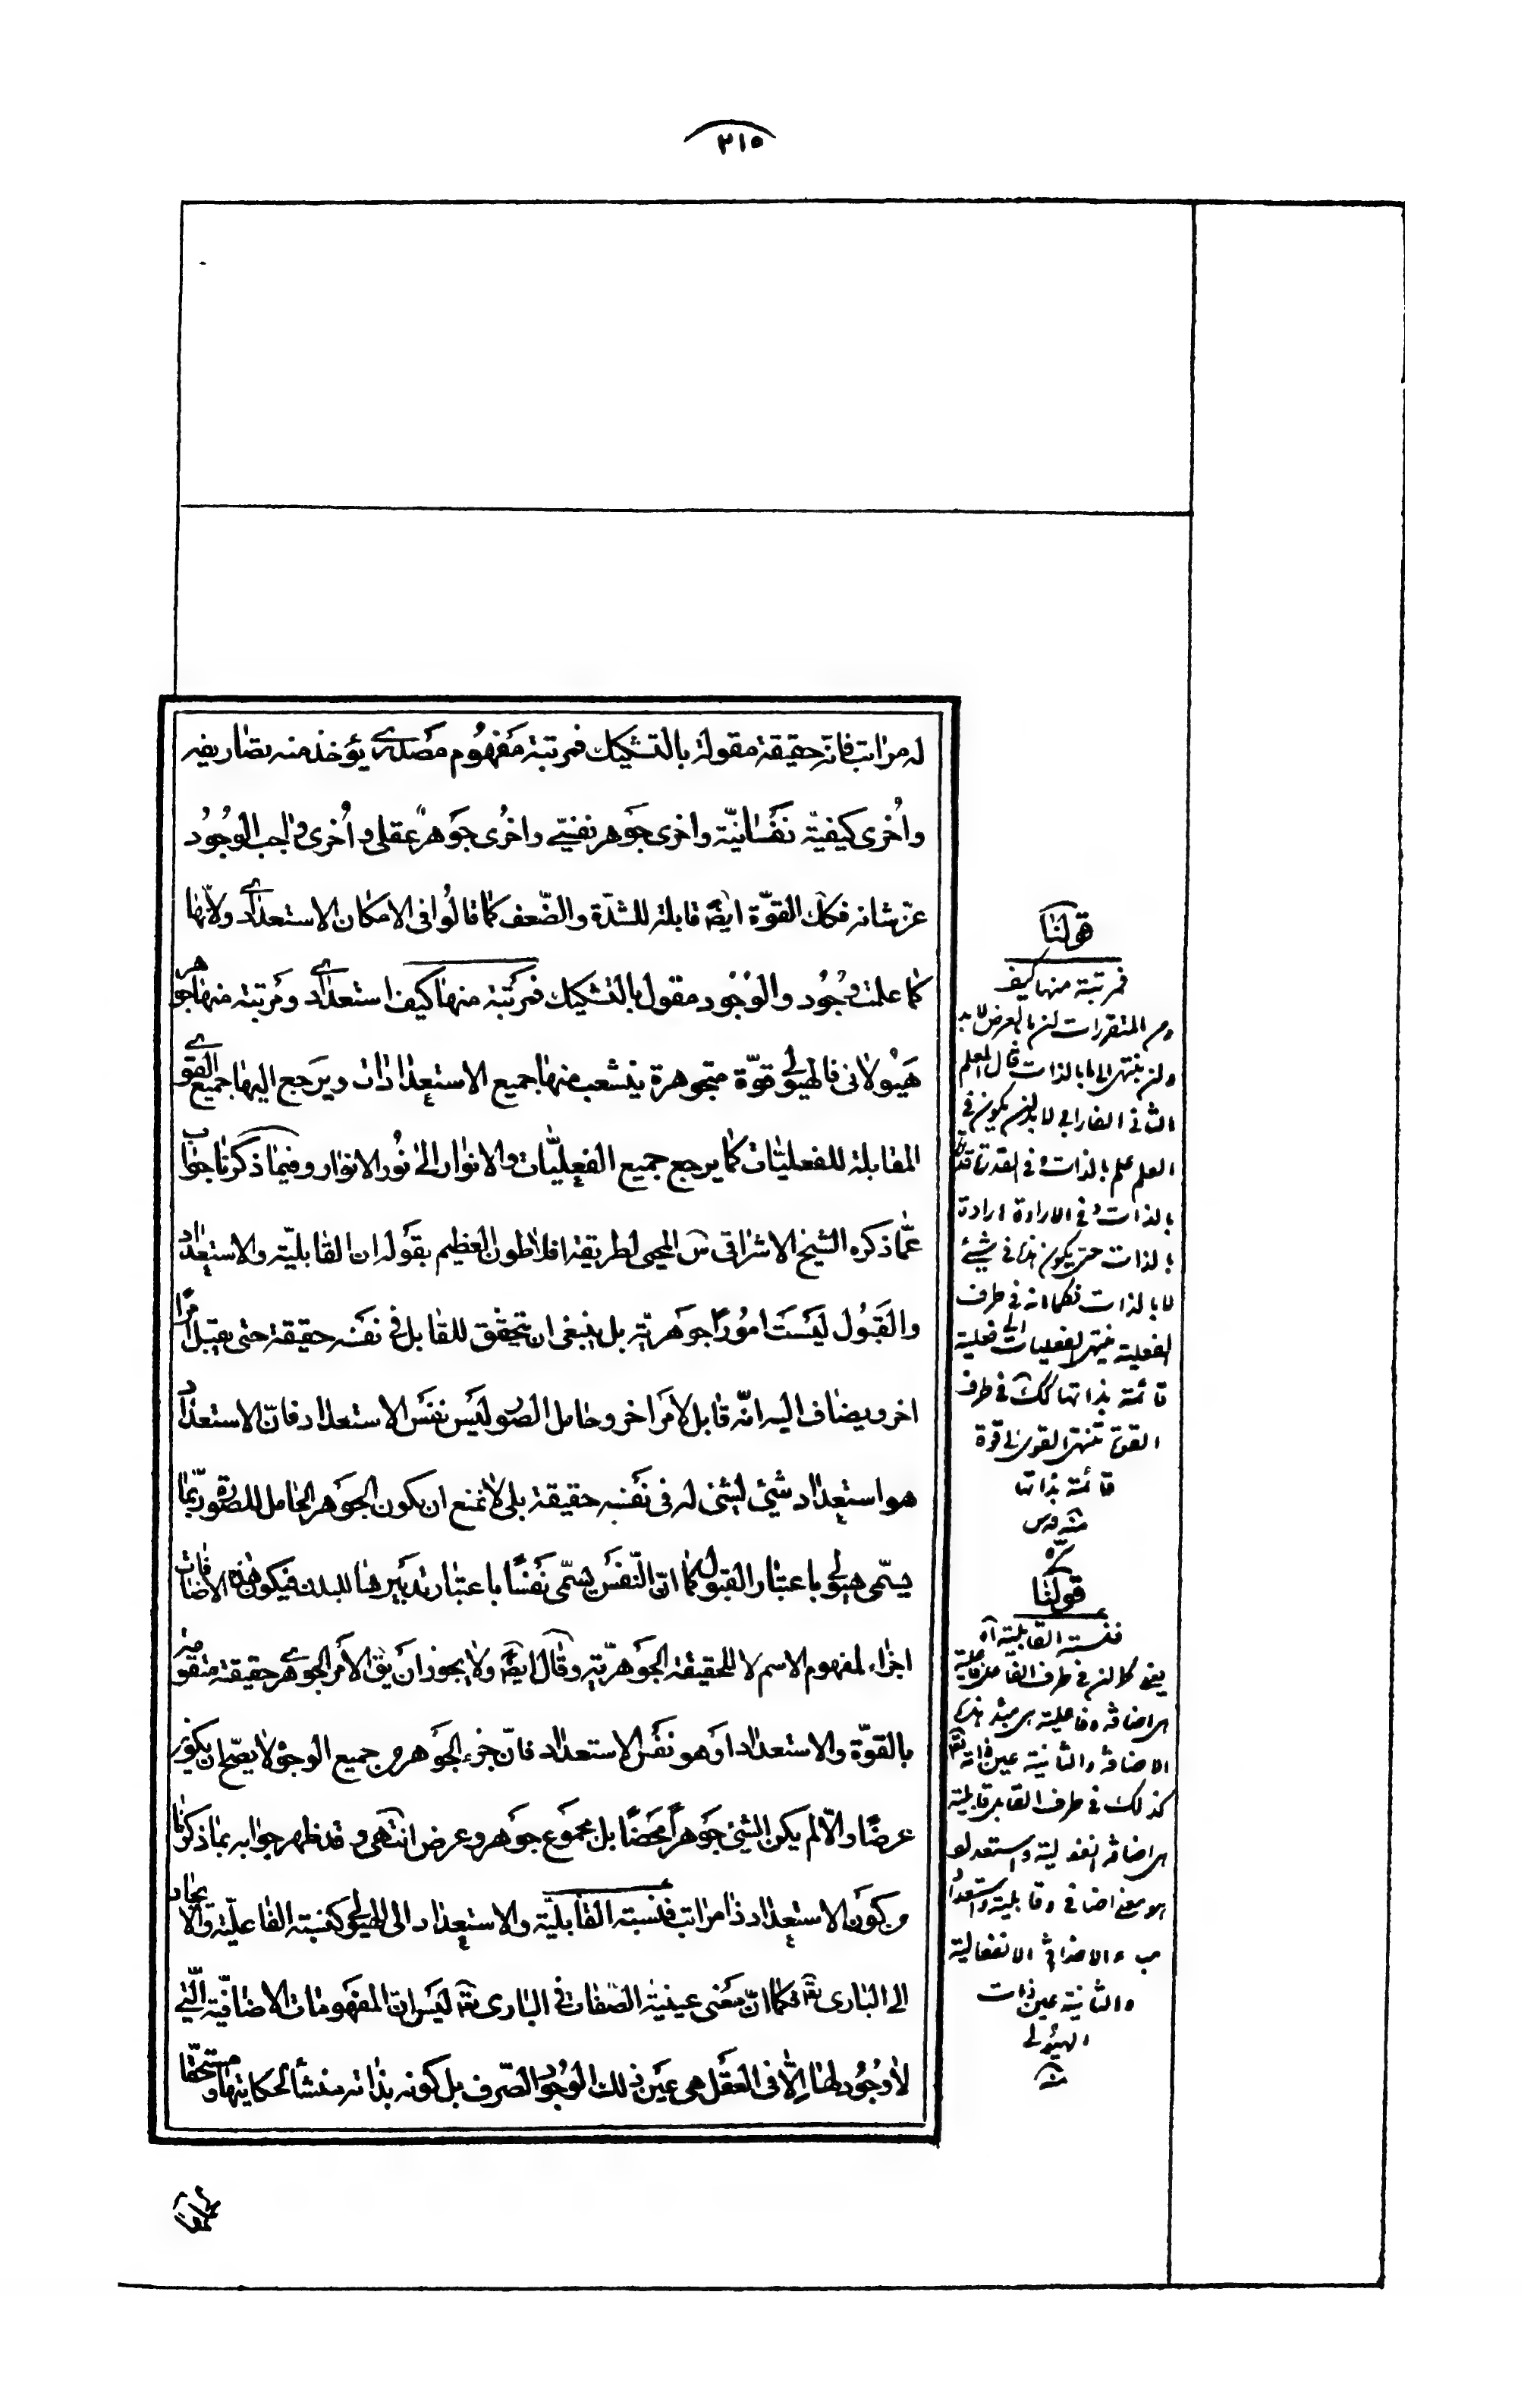 ٢١٥
له مراتب فانه حقيقة مقولة بالتشكيك فمرتبة مفهوم مصدرى يؤخذ منه تصاريفه
واُخرى كيفيّة نفسانيّة واخرى جوهر نفسى واخرى جوهرٌ عقلى واُخرى واجب الوجُود
عزّ شانه فكك القوّة ايضً قابلة للشدّة والضّعف كما قالوا فى الامكان الاستعدادى ولانّها
كما علمت وجُود والوجُود مقول بالتشكيك فمرتبة منها كيف استعدادى ومرتبة منها جوهر
هيولانى فالهيولى قوّة متجوهرة ينشعب منها جميع الاستعدادات ويرجع اليها جميع القوى
المقابلة للفعليّات كما يرجع جميع الفعليّات والانوار الى نُور الانوار وفيما ذكرنا جواب
عمّا ذكره الشيخ الاشراقى س المحيى لطريقة افلاطون العظيم بقوله ان القابليّة والاستعداد
والقبُول ليست امُورًا جوهريّة بل ينبغى ان يتحقق للقابل فى نفسه حقيقة حتى يقبل امرًا
اخر ويضاف اليه انّه قابل لامر اخر وحامل الصور ليس نفس الاستعداد فانّ الاستعداد
هو استعداد شئ لشئ له فى نفسه حقيقة بلى لا نمنع ان يكون الجوهر الحامل للصورة ربّما
يسمّى هيولى باعتبار القبول كما انّ النّفس يسمّى نفسًا باعتبار تدبيرها للبدن فيكون هذه الاضافات
اجزاء لمفهوم الاسم لا للحقيقة الجوهريّة وقال ايضً ولا يجوز ان يق الامر الجوهرى حقيقة متقومة
بالقوّة والاستعداد او هو نفس الاستعداد فانّ جزء الجوهر من جميع الوجوه لا يصحّ ان يكون
عرضًا والّا لم يكن الشئ جوهراً محضًا بل مجموع جوهر وعرض انتهى وقد ظهر جوابه بما ذكرنا
من كون الاستعداد ذا مراتب فنسبة القابليّة والاستعداد الى الهيولى كنسبة الفاعليّة والايجاد
الى البارى تع فكما انّ معنى عينيّة الصّفات فى البارى تع ليس انّ المفهومات الاضافيّة الّتى
لا وجُود لها الّا فى العقل هى عين ذلك الوجُود الصّرف بل كونه بذاته منشأ لحكايتها ومستحقّا
قولنا
فمرتبة منها كيف
من المتقررات ان ما بالعرض لا بد
وان ينتهى الى ما بالذات قال المعلم
الثانى الفارابى لا بد ان يكون فى
العلم علم بالذات وفى القدرة قدرة
بالذات وفى الارادة ارادة
بالذات حتى يكون هذه فى شئ
لا بالذات فكما انه فى طرف
الفعلية ينتهى الفعليات الى فعلية
قائمة بذاتها كك فى طرف
القوة تنتهى القوى الى قوة
قائمة بذاتها
منه قدس
سره
قولنا
فنسبة القابلية اه
يعنى كما ان فى طرف الفاعل فاعلية
هى اضافة وفاعلية هى مبدء هذه
الاضافة والثانية عين ذاته تع
كذلك فى طرف القابل قابلية
هى اضافة انفعالية واستعداد
هو معنى اضافى وقابلية واستعداد
والاضافة الانفعالية
والثانية عين ذات
الهيولى
منه